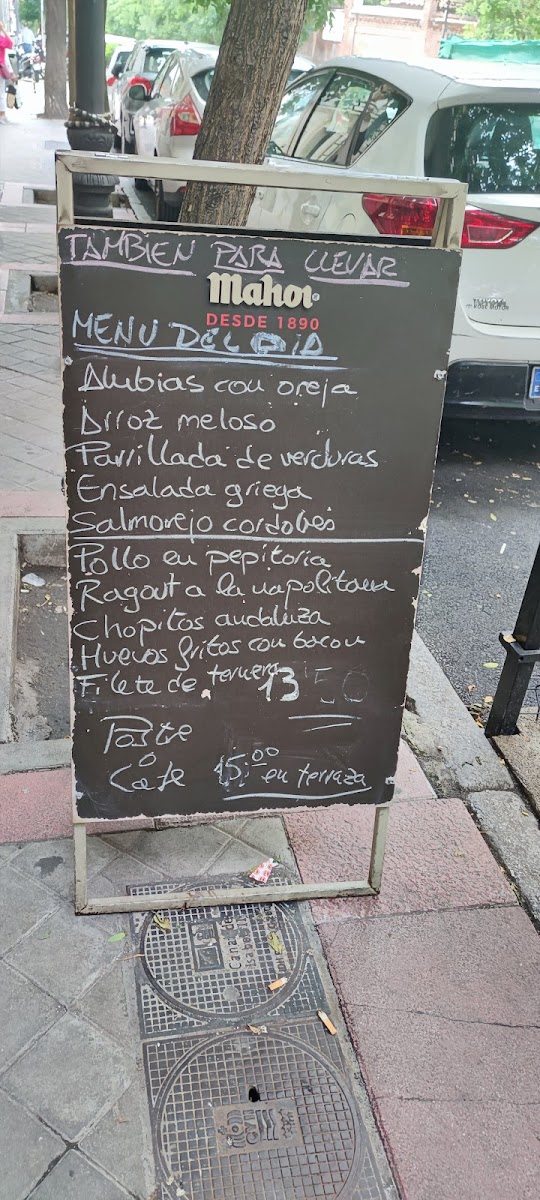 TAMBIEN PARA LLEVAR
Mahou
DESDE 1890
MENU DEL DIA
Alubias con oreja
Arroz meloso
Parrillada de verduras
Ensalada griega
Salmorejo cordobés
Pollo en pepitoria
Ragout a la napolitana
Chopitos andaluza
Huevos fritos con bacon
Filete de ternera
13'50
Postre
ó
Café
15,00 en terraza
TOYOTA
Canal de
Isabel II